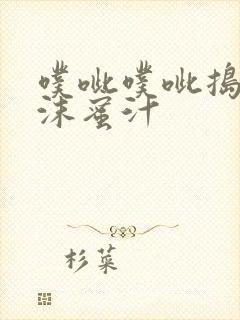 噗呲噗呲搗
沫蜜汁
杉菜